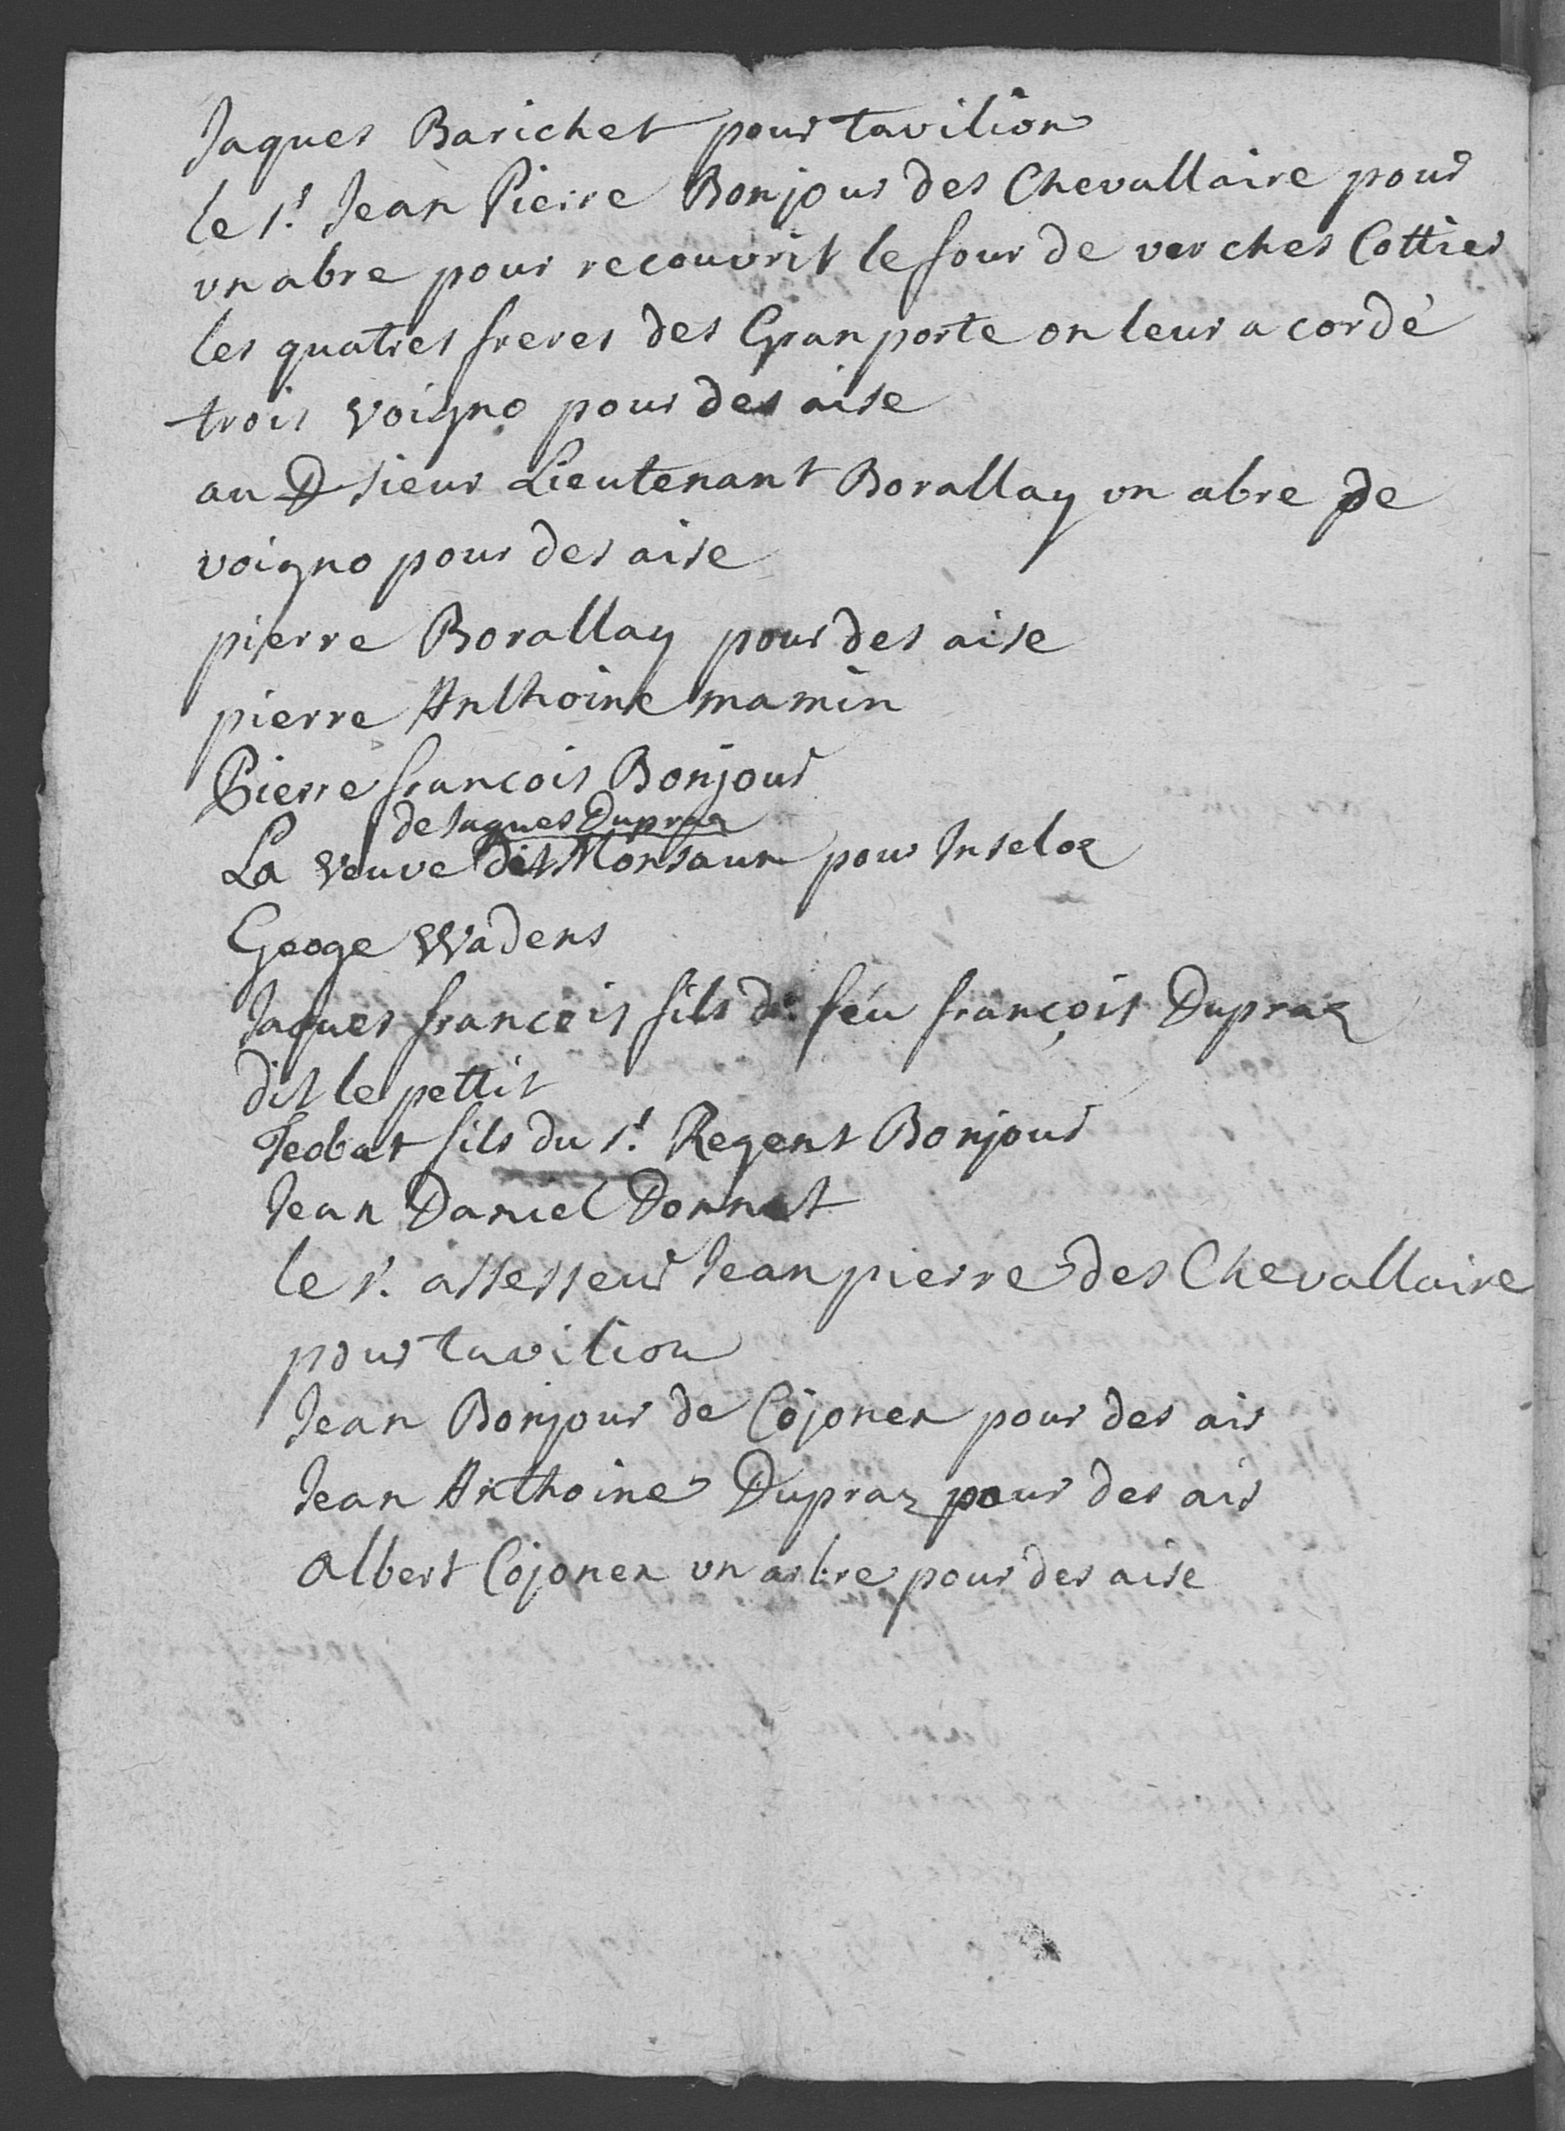 Jaques Barichet pour tavilion
le Sr. Jean Pierre Bonjour des Chevallaire pour
un abre pour recouvrit le four de ver ches Cottier
les quatres freres des Granporte on leur a cordé
trois voigno pour des aise
au D sieur Lieutenant Borallay un abre de
voigno pour des aise
pierre Borallay pour des aise
pierre Anthoine mamin
Pierre francois Bonjour
de Jaques Dupraz
La veuve dit Monsaun pour Inseloz
Geoge Wadens
Jaques francois fils de féu françois Dupraz
dit le pettit
Teobat fils du Sr. Regent Bonjour
Jean Daniel Donnat
le Sr. assesseur Jean pierre des Chevallaire
pour tavilion
Jean Bonjour de Cojonex pour des ais
Jean Anthoine Dupraz pour des ais
Albert Cojonex un arbre pour des aise